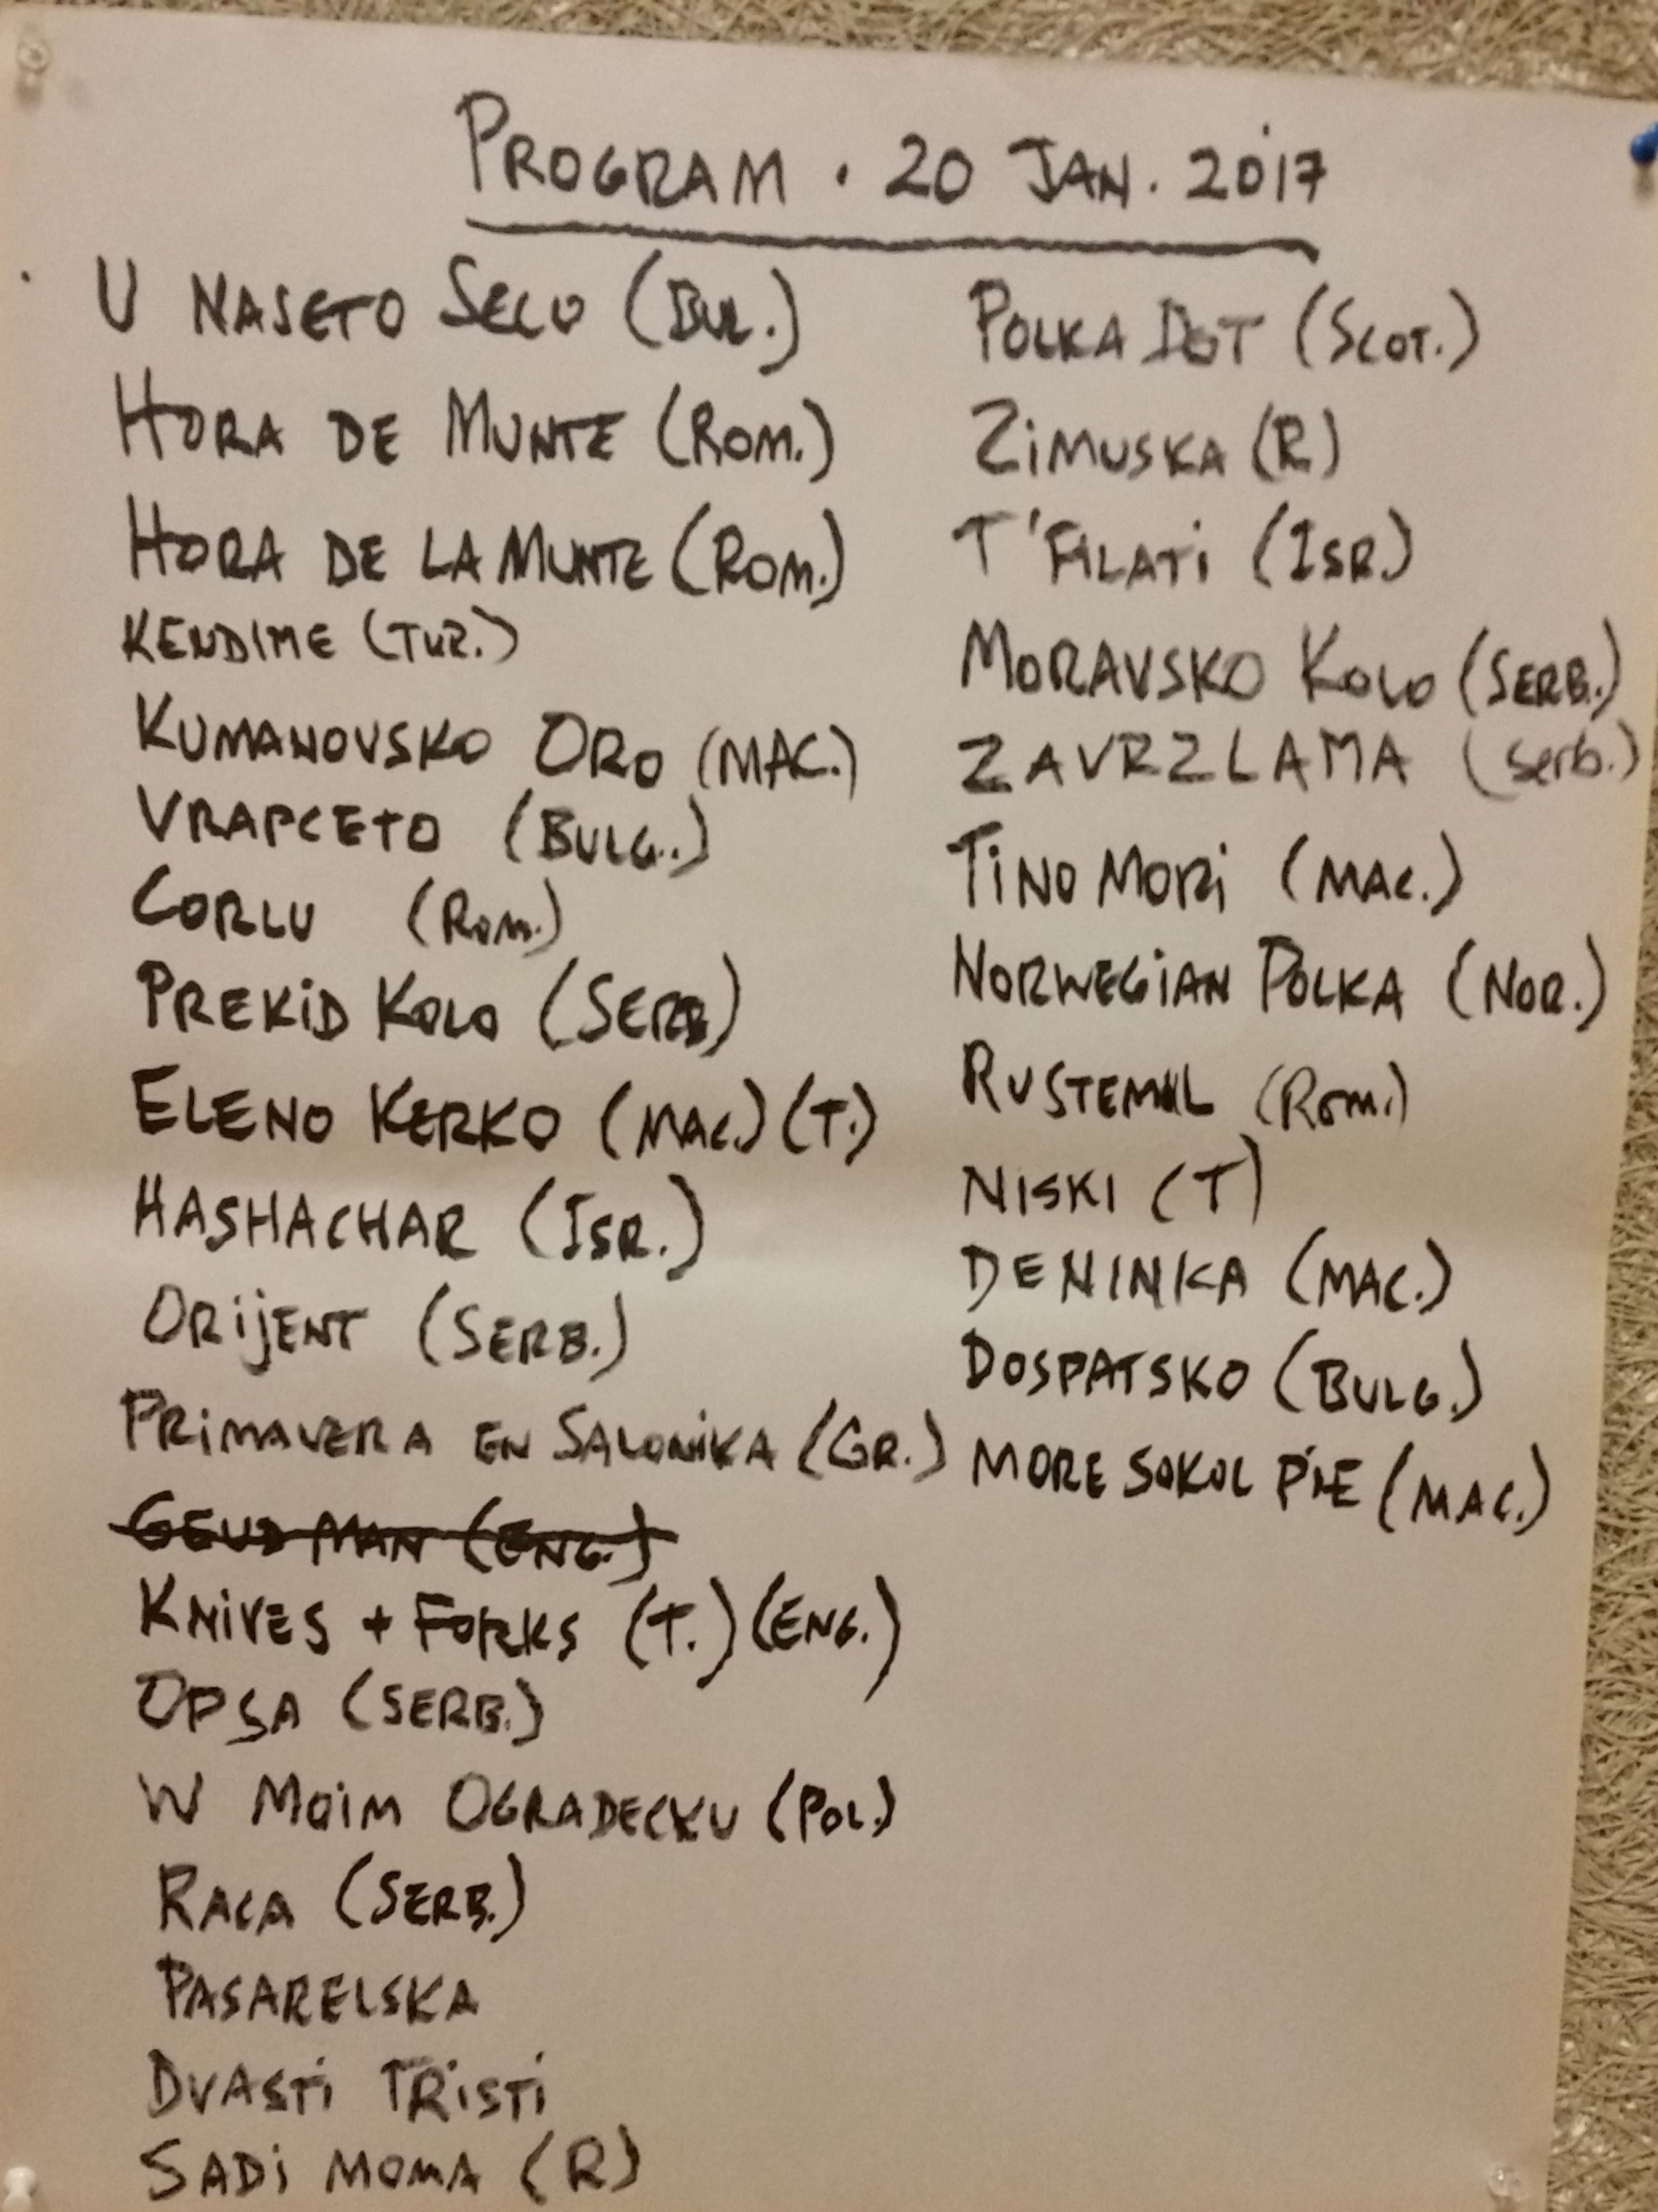 PROGRAM . 20 JAN. 2017
U NASETO SELO (BUL.)
HORA DE MUNTE (ROM.)
HORA DE LA MUNTE (ROM.)
KENDIME (TUR.)
KUMANOVSKO ORO (MAC.)
VRAPCETO (BULG.)
CORLU (ROM.)
PREKID KOLO (SERB)
ELENO KERKO (MAC.) (T.)
HASHACHAR (ISR.)
ORIJENT (SERB.)
PRIMAVERA EN SALONIKA (GR.)
GEUD MAN (ENG.)
KNIVES + FORKS (T.) (ENG.)
OPSA (SERB.)
W MOIM OGRADECKU (POL.)
RACA (SERB.)
PASARELSKA
DVASTI TRISTI
SADI MOMA (R)
POLKA DOT (SCOT.)
ZIMUSKA (R)
T'FILATI (ISR.)
MORAVSKO KOLO (SERB.)
ZAVRZLAMA (Serb.)
TINO MORI (MAC.)
NORWEGIAN POLKA (NOR.)
RUSTEMUL (ROM.)
NISKI (T)
DENINKA (MAC.)
DOSPATSKO (BULG.)
MORE SOKOL PIE (MAC.)